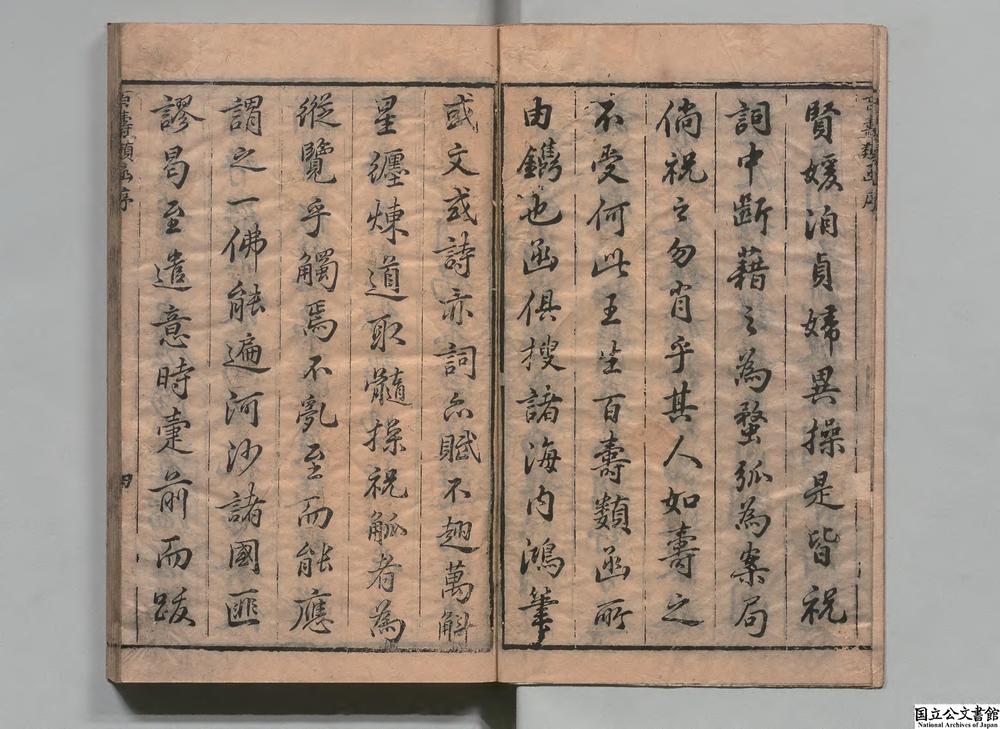 賢媛洵貞婦異操是皆祝
詞中斷藉之為螯弧為案局
倘祝之勿肖乎其人如壽之
不受何此王生百壽類函所
由鐫也函俱搜諸海内鴻筆
或文或詩亦詞亦賦不翅萬斛
星纏煉道取髓操祝觚者為
縱覽乎觸焉不亂至而能應
謂之一佛能遍河沙諸國匪
謬曷至遣意時疐前而跋
百壽類函序
百壽類函序
四
国立公文書館
National Archives of Japan